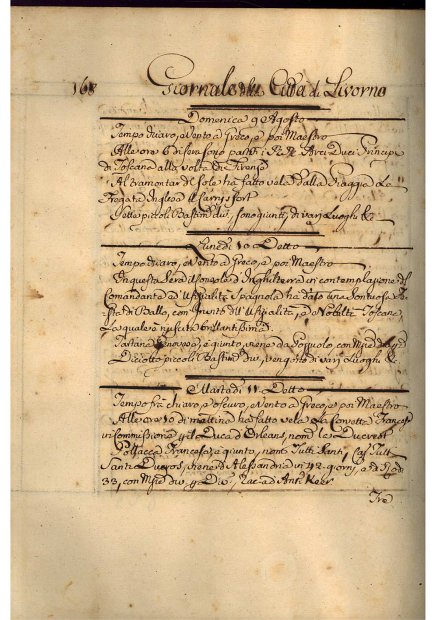 168 Giornale della Città di Livorno
Domenica 9 Agosto
Tempo chiaro, e Vento a Greco, e poi Maestro
Alle ore 6 di sera sono partiti i R.R. Arci Duci Principi
di Toscana alla volta di Firenze
Al tramontar del Sole ha fatto vela dalla Spiaggia La
Fregata Inglese il Carrysfort
Sette piccoli Bastim.ti div.si sono giunti di varj Luoghi &c
Lunedì 10 Detto
Tempo chiaro, e Vento a Greco, e poi Maestro
In questa Sera il Console d'Inghilterra in contemplazione del
Comandante ed Ufizialità Spagnola ha dato una Sontuosa Fe
sta di Ballo, con invito dell'Ufizialità, e Nobiltà Toscana,
La quale è riuscita brillantissima
Tartana Genovese, è giunto, viene da Pozzuolo con
Diciotto piccoli Bastim.ti div.si vengono di varj Luoghi &c
Martedì 11 Detto
Tempo frà chiaro, e oscuro, e Vento a Greco, e poi Maestro
Alle ore 10 di mattina ha fatto vela La Corvetta Francese
in commissione p il Duca d'Orleans, nom.
Pollacca Francese è giunto, nom. Tutti Santi, Cap.
viene d'Alessandria in 42 giorni, e di Rodi
33, con div.
Tre